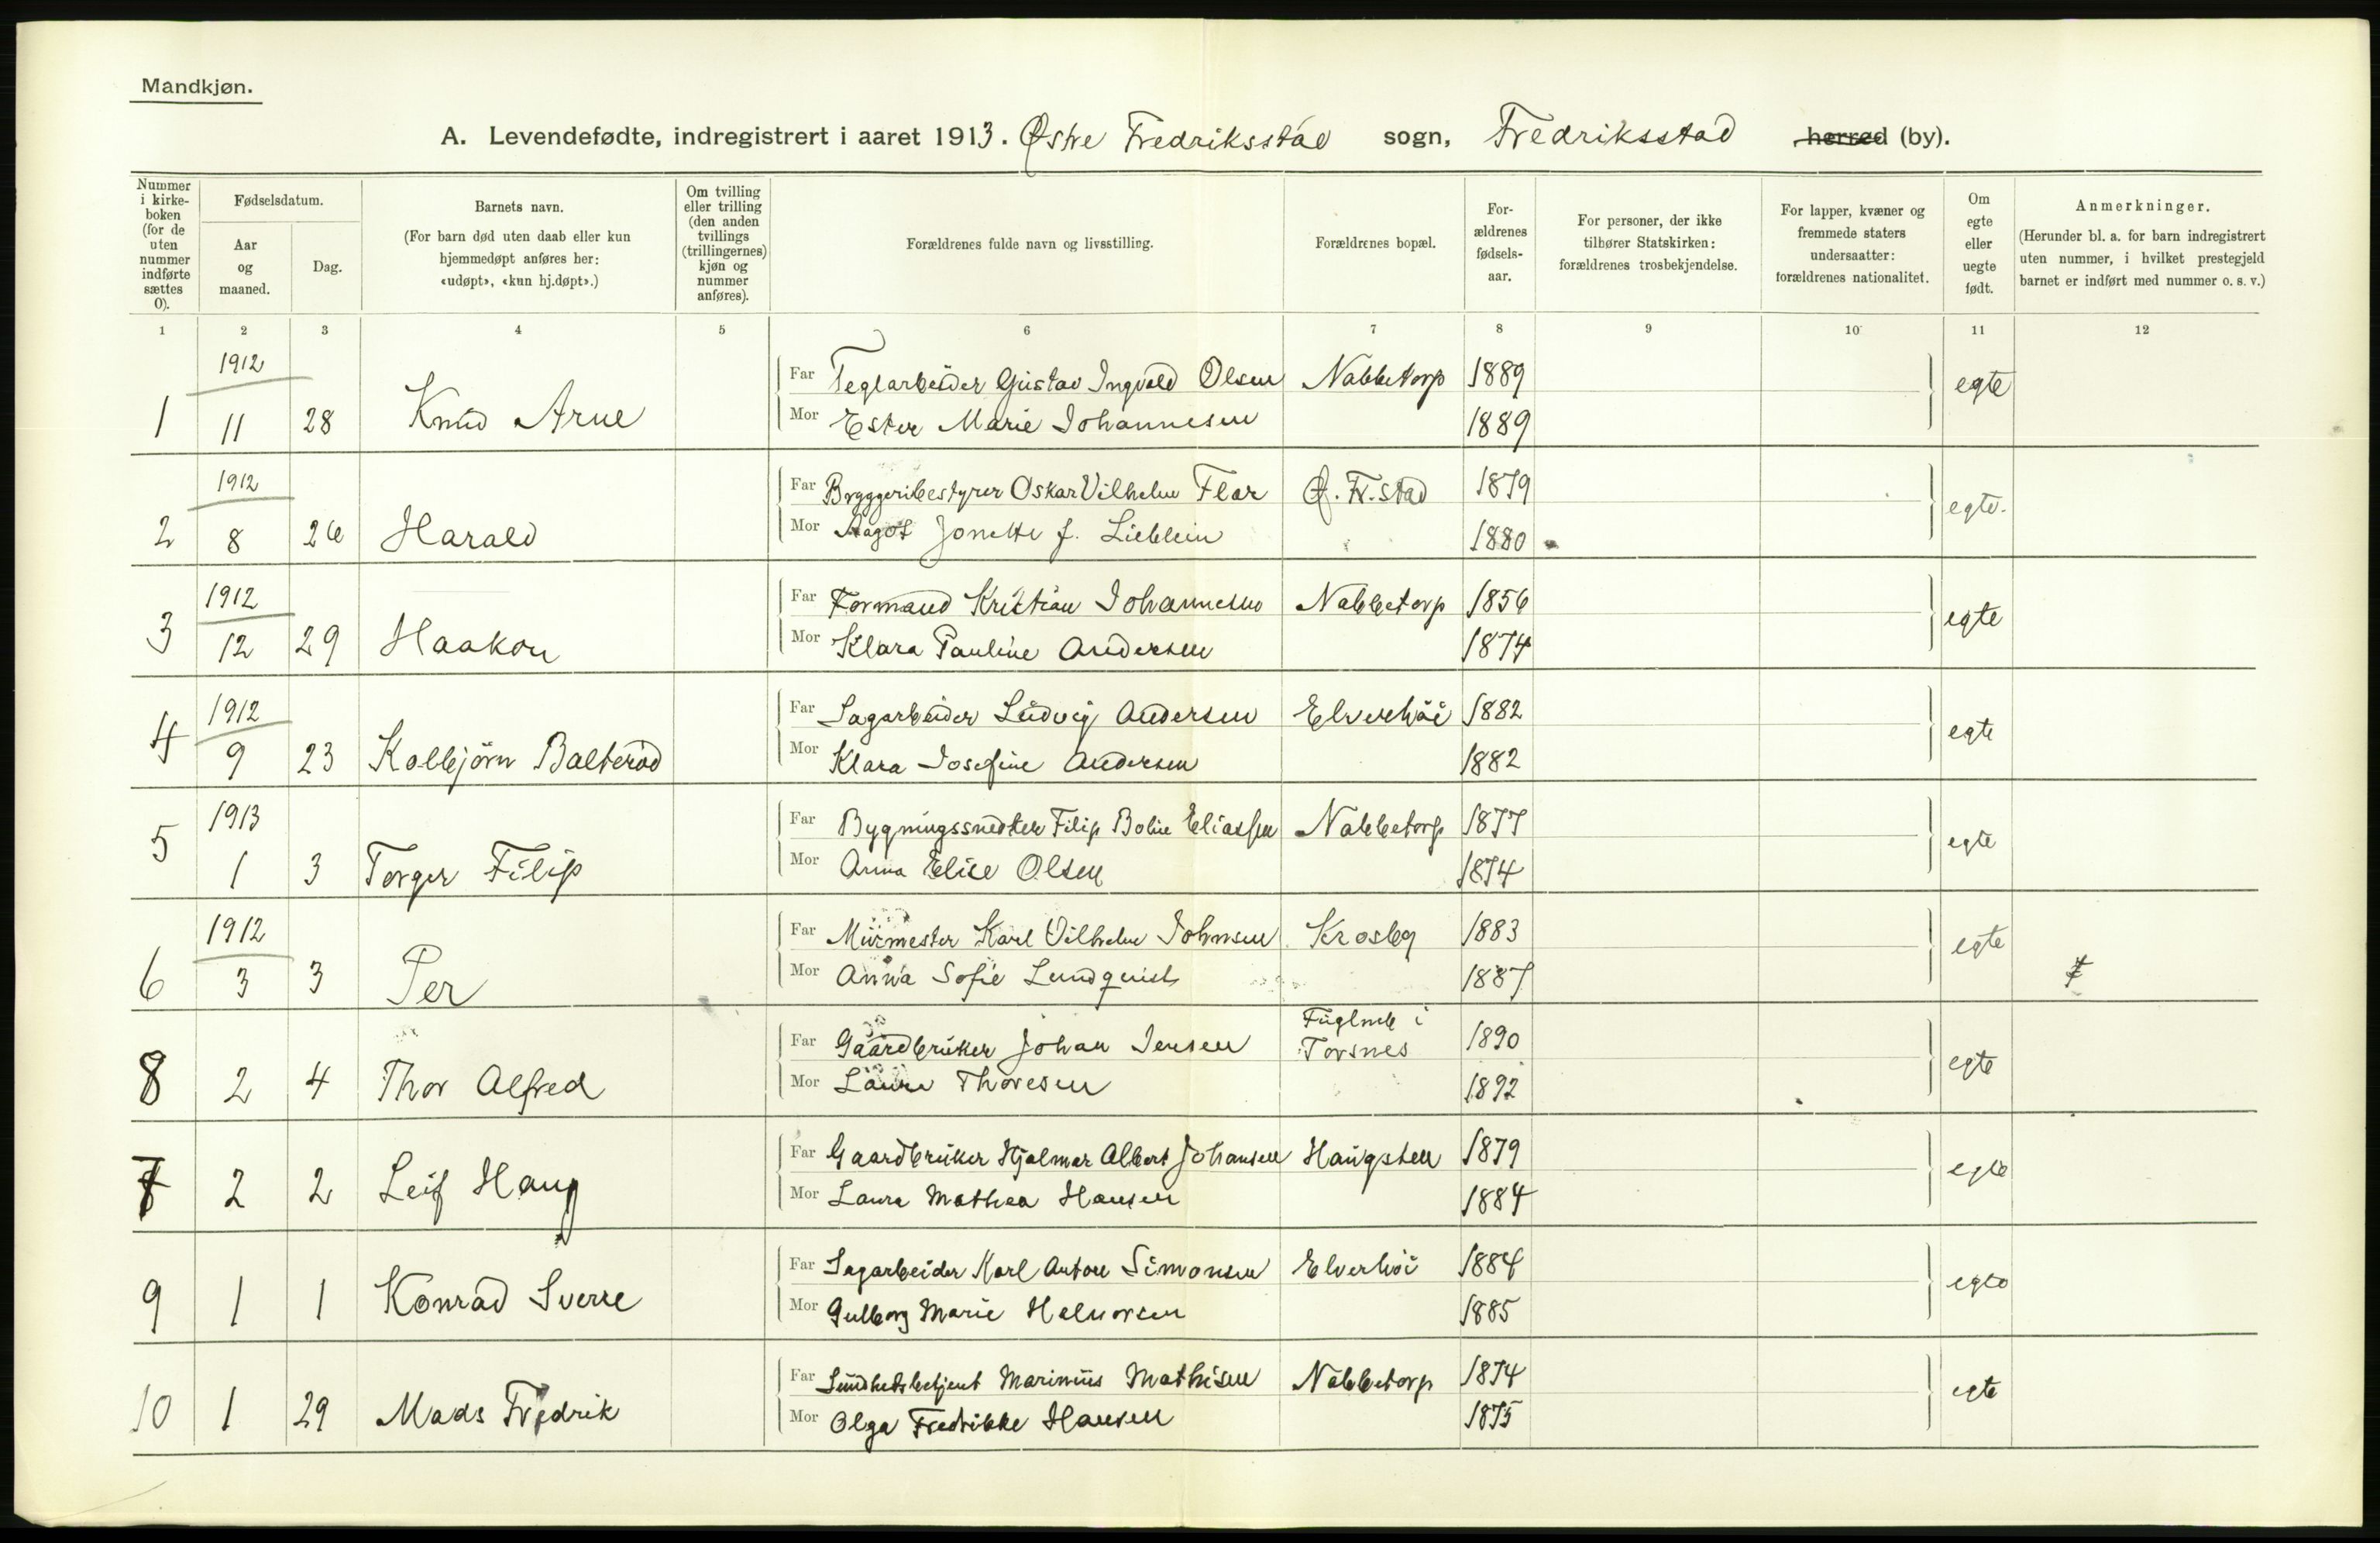 Mandkjøn.
A. Levendefødte, indregistrert i aaret 1913. Østre Fredriksstad sogn, Fredriksstad herred (by).
Nummer i kirkeboken (for de uten nummer indførte sættes 0).
Fødselsdatum.
Aar og maaned.
Dag.
Barnets navn.
(For barn død uten daab eller kun hjemmedøpt anføres her: «udøpt», «kun hj.døpt».)
Om tvilling eller trilling (den anden tvillings (trillingernes) kjøn og nummer anføres).
Forældrenes fulde navn og livsstilling.
Forældrenes bopæl.
Forældrenes fødselsaar.
For personer, der ikke tilhører Statskirken: forældrenes trosbekjendelse.
For lapper, kvæner og fremmede staters undersaatter: forældrenes nationalitet.
Om egte eller uegte født.
Anmerkninger.
(Herunder bl. a. for barn indregistrert uten nummer, i hvilket prestegjeld barnet er indført med nummer o. s. v.)
1 2 3 4 5 6 7 8 9 10 11 12
1912
Far Teglarbeider Gustav Ingvald Olsen Nabbetorp 1889 egte
1 11 28 Knud Arne
Mor Ester Marie Johannesen 1889
1912
Far Bryggeribestyrer Oskar Vilhelm Flor Ø. Fr.stad 1879 egte.
2 8 26 Harald
Mor Aagot Jonette f. Lieblein 1880
1912
Far Formand Kristian Johannesen Nabbetorp 1856 egte
3 12 29 Haakon
Mor Klara Pauline Andersen 1874
1912
Far Sagarbeider Ludvig Andersen Elverhöi 1882 egte
4 9 23 Kolbjörn Balteröd
Mor Klara Josefine Andersen 1882
1913
Far Bygningssnedker Filip Bolin Eliassen Nabbetorp 1877 egte
5 1 3 Torger Filip
Mor Anna Elise Olsen 1874
1912
Far Murmester Karl Vilhelm Johnsen Krosby 1883 egte
6 3 3 Per
Mor Anna Sofie Lundquist 1887
Far Gaardbruker Johan Jensen i Torsnes 1890 egte
8 2 4 Thor Alfred
Mor Laura Thoresen 1892
Far Gaardbruker Hjalmar Albert Johansen Haugsten 1879 egte
7 2 2 Leif Haug
Mor Laura Mathea Hansen 1884
Far Sagarbeider Karl Anton Simonsen Elverhöi 1884 egte
9 1 1 Konrad Sverre
Mor Gulborg Marie Halvorsen 1885
Far Sundhetsbetjent Marinius Mathisen Nabbetorp 1874 egte
10 1 29 Mads Fredrik
Mor Olga Fredrikke Hansen 1875